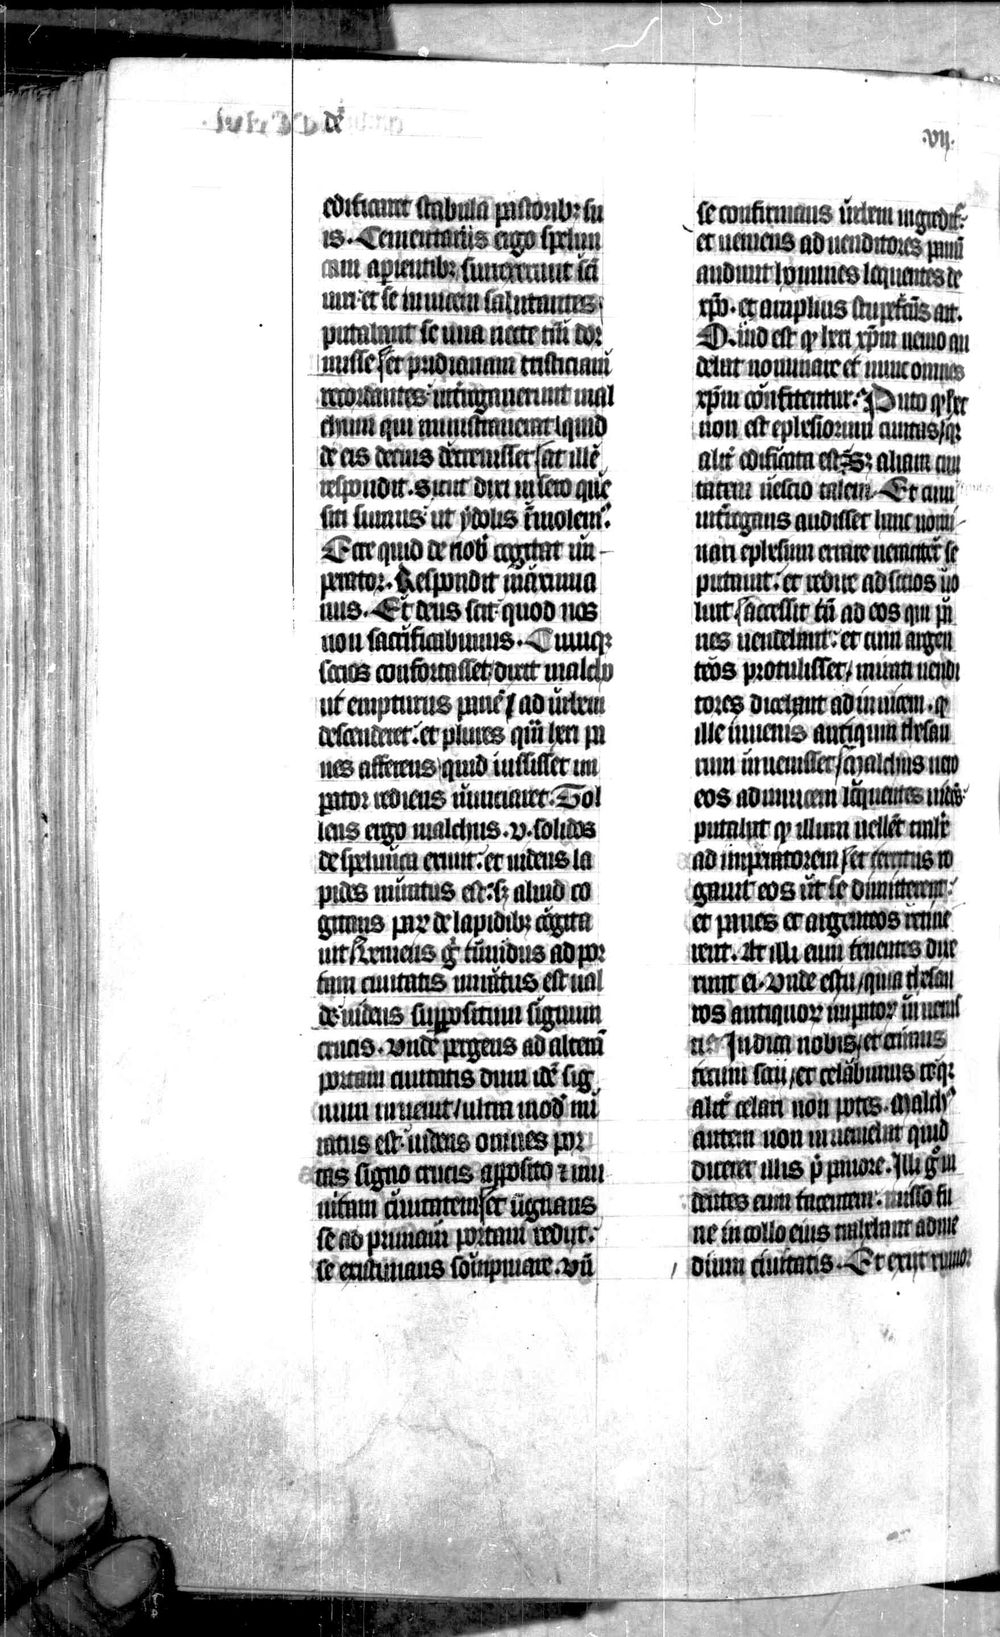 dē
.vij.
edificaret stabula pastoribꝫ su
is. Cementariis ergo spelun
cam aperientibꝫ surrexerunt sc̄i
viri et se invicem salutantes
putabant se una nocte tm̄ dor
misse set pridianam tristiciam
recordantes int̄rogaverunt mal
chum qui ministraverat quid
de eis decius decrevisset at ille
respondit. Sicut dixi in sero que
siti sumus ut ydolis t̄molemꝰ.
Ecce quid de nob̄ cogitat im
perator. Respondit maximia
nus. Et deus scit quod nos
non sacrificabimus. Cumqꝫ
socios confortasset dixit malcho
ut empturus panē ad urbem
descenderet. et plures q̄ȝ heri pa
nes afferens quid iussisset im
pator rediens nunciaret. Tol
lens ergo malchus .v. solidos
de spelunca exiuit. et uidens la
pides miratus est. sꝫ aliud co
gitans parū de lapidibꝫ cogita
uit. Veniens g̊ timidus ad por
tam ciuitatis miratus est ual
de uidens suppositum signum
crucis. Vnde pergens ad alterā
portam ciuitatis dum idē sig
num inuenit ultra modū mi
ratus est. uidens omnes por
tas signo crucis apposito ⁊ mu
nitam ciuitatem set signans
se ad primam portam redijt.
se existimans sompniare. vñ
se confirmans urbem ingredit̄
et ueniens ad uenditores panū
audiuit homines loquentes de
xp̄o. et amplius stupefcūs ait.
Quid est qͦ heri xp̄m nemo au
debat nominare et nunc omnes
xp̄m confitentur. Puto qͦ hec
non est ephesiorum ciuitas qꝫ
alit̄ edificata est. Sꝫ aliam ciui
tatem nescio talem. Et cum
int̄rogans audisset hanc nomi
nari ephesum errare ueraciter se
putauit. et redire ad socios uo
luit. accessit tn̄ ad eos qui pa
nes uendebant. et cum argen
teos protulisset, mirati uendi
tores dicebant adinuicem. qͦ
ille iuuenis antiquum thesau
rum inuenisset. Malchus uero
eos adinuicem loquentes uidēs
putabat qͦ illum uellēt trah̄e
ad imperatorem set territus ro
gauit eos ut se dimitterent.
et panes et argenteos retine
rent. At illi eum tenentes dixe
runt ei. Vnde es tu, quia thesau
ros antiquorꝫ impatorꝫ inuenis
tis. Indica nobis, et erimus
tecum socii, et celabimus te qꝫ
alit̄ celari non potes. Malchꝰ
autem non inueniebat quid
diceret illis p̄ pauore. Illi g̊ ui
dentes eum tacentem. misso fu
ne in collo eius trahebant ad me
dium ciuitatis. Et exijt rumor